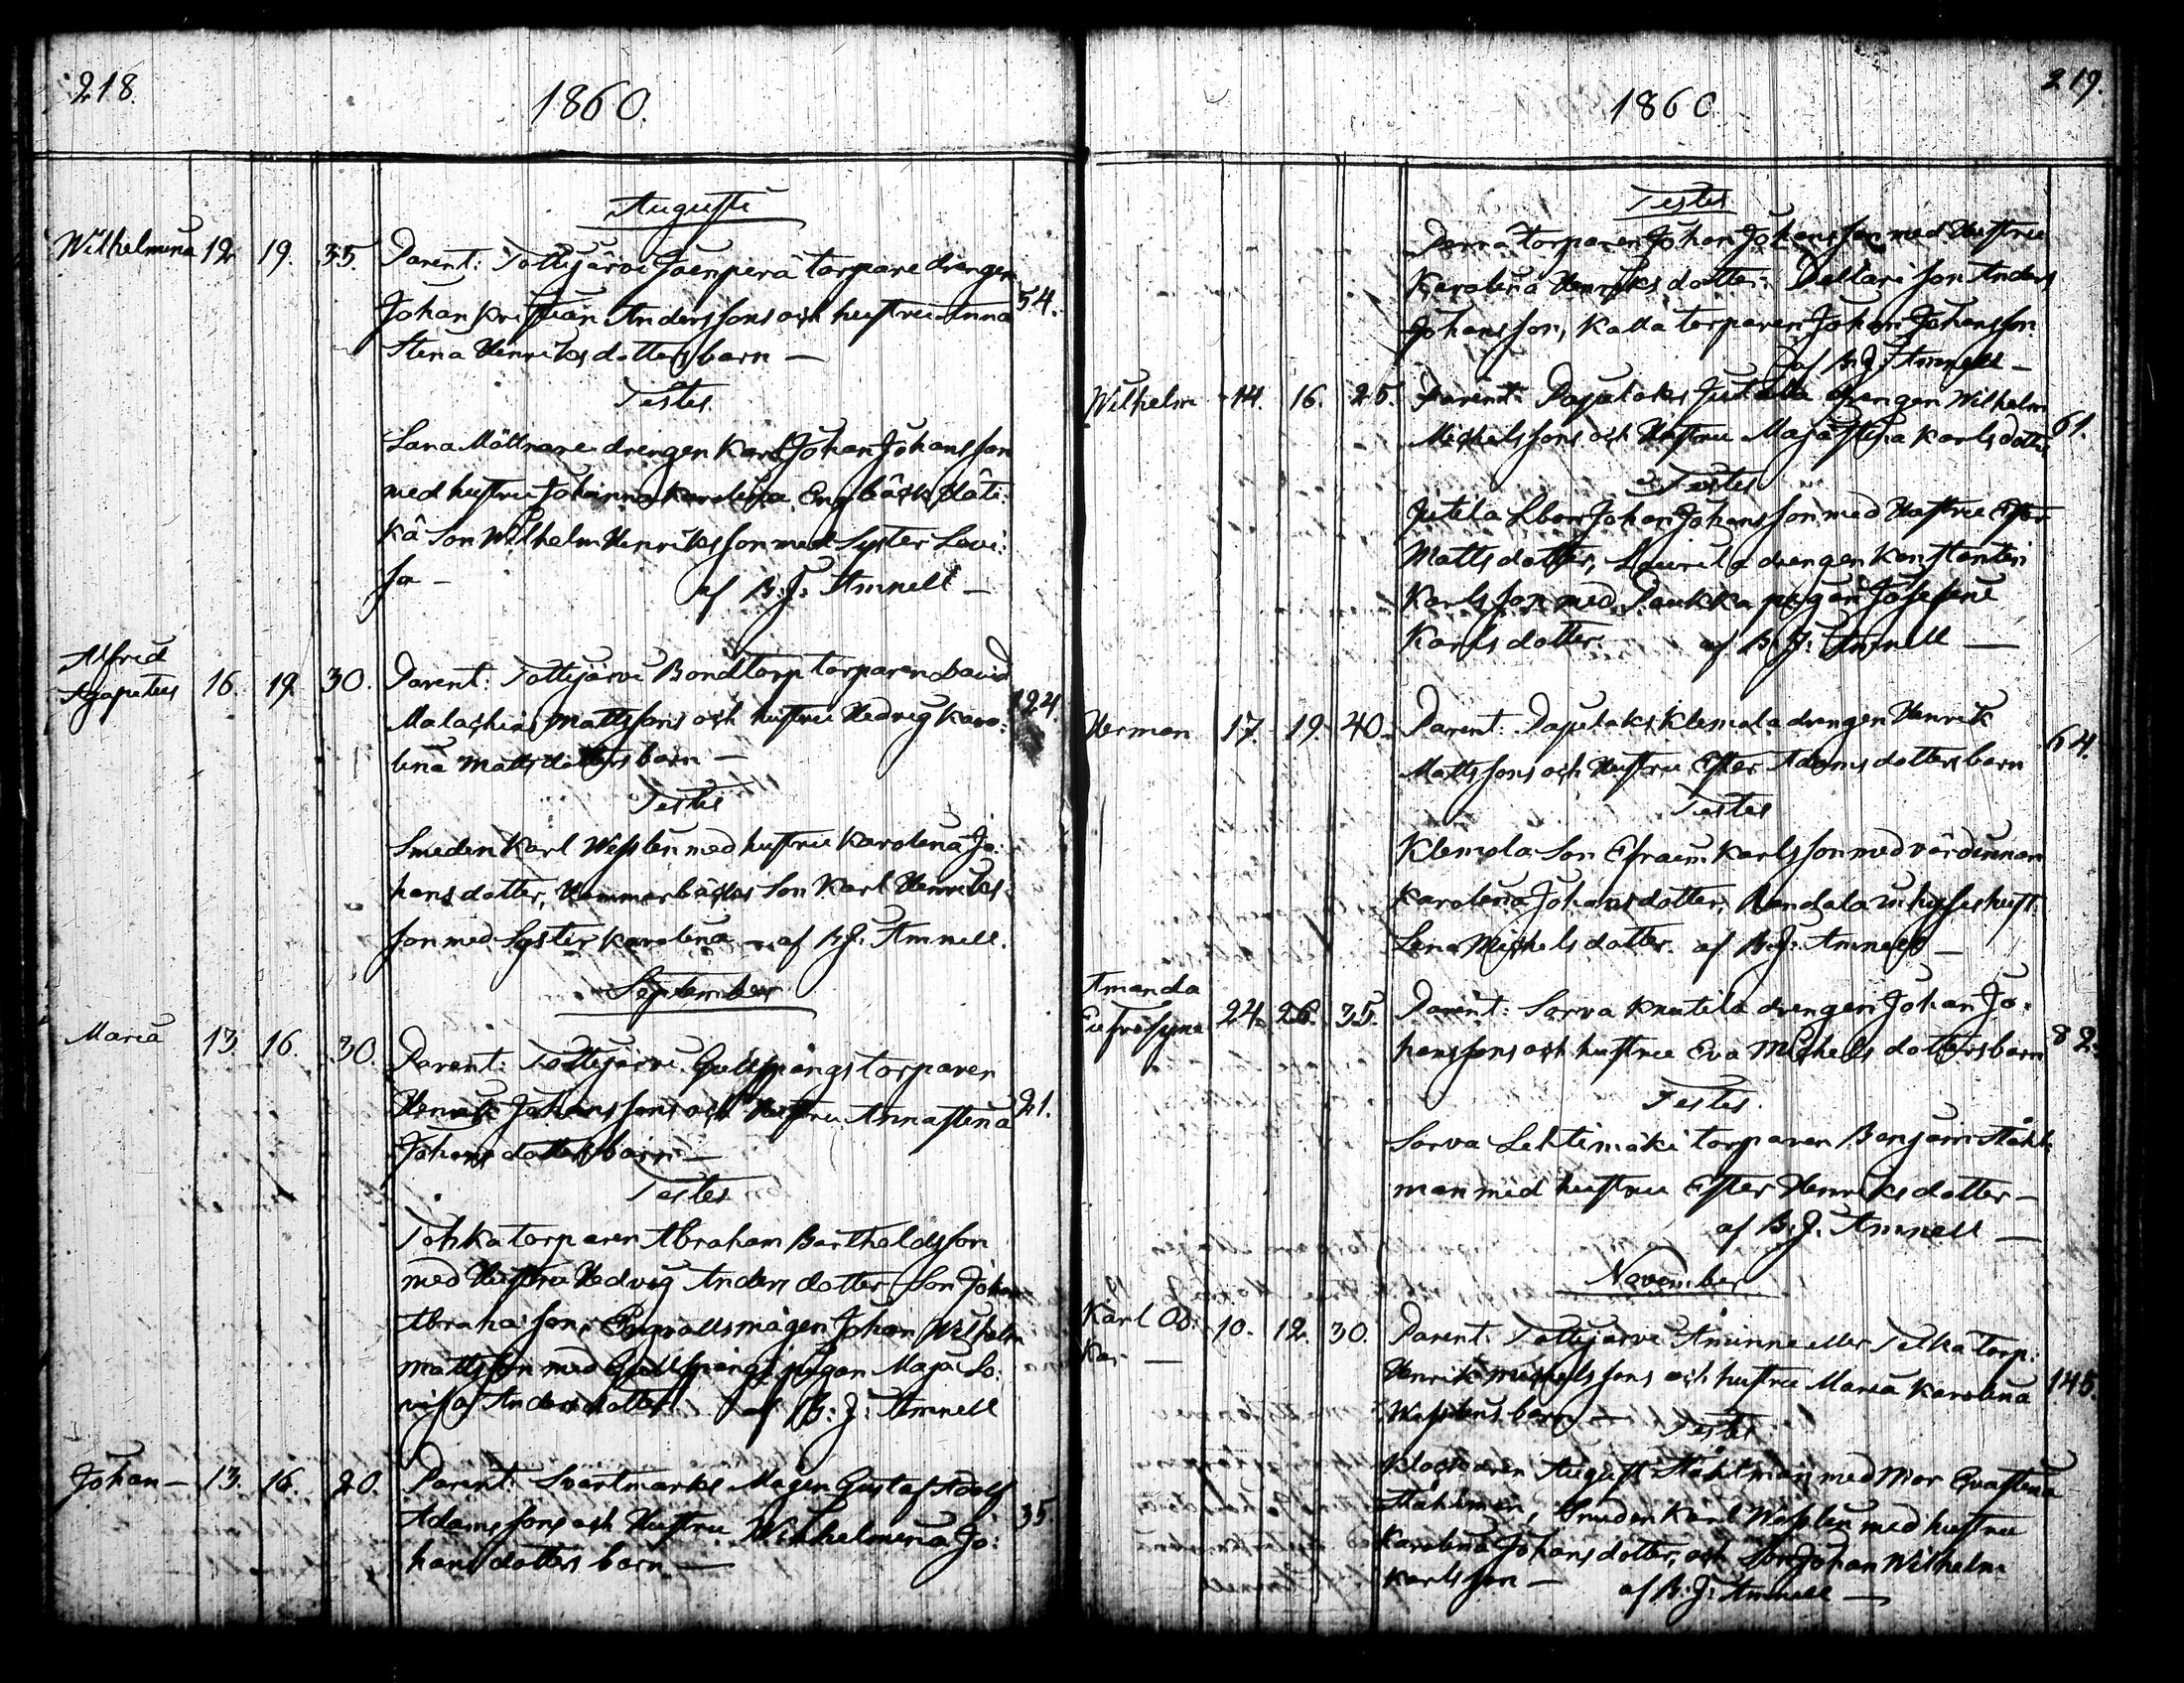 218.
1860.
Augusti
Wilhelmina 12. 19. 35. Parent: Tottijärvi Joenperä torpare drengen
Johan Kristian Anderssons och hustru Anna 54.
Stena Henriksdotters barn —
Testes
Lana Möllnare drengen Karl Johan Johansson
med hustru Johanna Karolina Engbäck,
kä Son Wilhelm Henriksson med Syster Lovi:
sa — af B. J. Amnell —
Alfred
Agapetus 16. 19. 30. Parent: Tottijärvi Bondtorp torparen David
Malachias Mattssons och hustru Hedvig Karo: 124.
lina Mattsdotters barn —
Testes
Smeden Karl Wesslen med hustru Karolina Jo:
hansdotter, Hammarbacka Son Karl Henriks:
son med Syster Karolina — af B. J. Amnell.
September
Maria 13. 16. 30. Parent: Tottijärvi Gullspångs torparen
Henrik Johanssons och Hustru Annastina 21.
Johansdotters barn —
Testes
Tohka torparen Abraham Bartholdsson
med Hustru Hedvig Andersdotter Son Johan
Abrahasson, mågen Johan Wilhelm
Mattsson med Gullspångs pigan Maja Lo:
visa Andersdotter af B: J: Amnell
Johan — 13. 16. 20. Parent: Svartmarks Mågen Gustaf Adolf
Adamssons och Hustru Wilhelmina Jo: 35.
hansdotters barn —
219.
1860
Testes
Perra torparen Johan Johansson med Hustru
Karolina Henriksdotter: Dellari Son Anders
Johansson, Kalla torparen Johan Johansson
af B. J. Amnell —
Wilhelm 14. 16. 25. Parent: Pajulaks Jutila drengen Wilhelm
Michelssons och Hustru Majastina Karlsdott: 61.
Testes
Jutila Sbon Johan Johansson med Hustru Ester
Mattsdotter, Laurila drengen Konstantin
Karlsson med Paukka pigan Josefine
Karlsdotter. af B. J. Amnell —
Herman 17. 19. 40. Parent: Pajulaks Klemola drengen Henrik
Mattssons och Hustru Ester Adamsdotters barn 64.
Testes
Klemola Son Efraim Karlsson med värdinnan
Karolina Johansdotter, inhyses hust:
Lena Michelsdotter. af B. J. Amnell —
Amanda
Eufrosyne 24. 26. 35. Parent: Sorva Knutila drengen Johan Jo:
hanssons och hustru Eva Michelsdotters barn 82.
Testes.
Sorva Lehtimäki torparen Benjam: Ståhl:
man med hustru Ester Henriksdotter —
af B. J. Amnell —
November
Karl Os:
kar — 10. 12. 30. Parent. Tottijärvi Aminne eller Telka torp:
Henrik Michelssons och hustru Maria Karolina 145.
Wesslens barn —
Testes
Klockaren August Ståhlman med Mor Evastina
Ståhlman, Smeden Karl Wesslen med hustru
Karolina Johansdotter, och Son Johan Wilhelm
Karlsson — af B: J: Amnell —